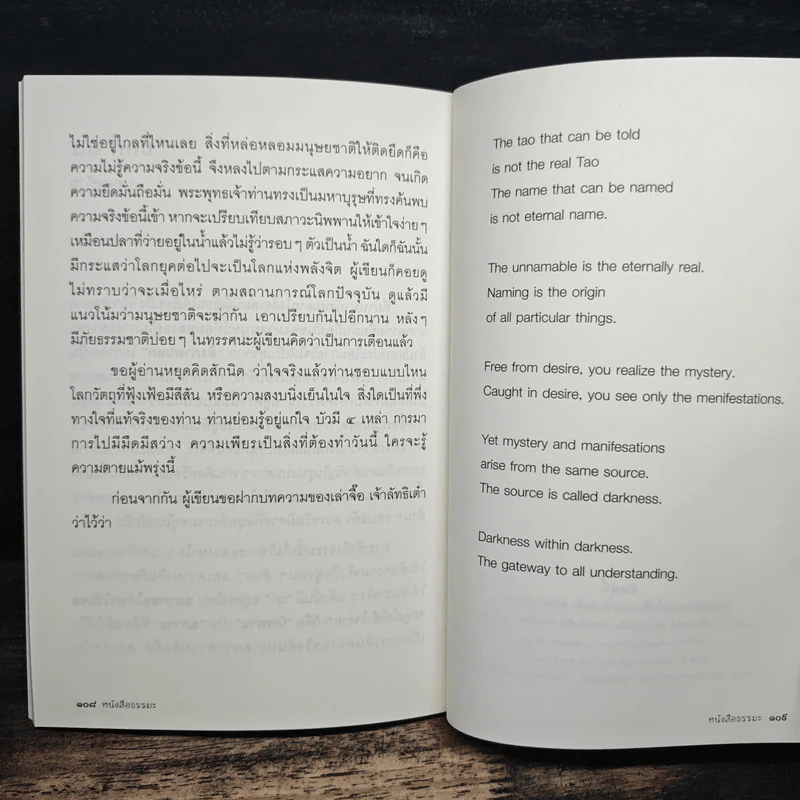 ไม่ใช่อยู่ไกลที่ไหนเลย สิ่งที่หล่อหลอมมนุษยชาติให้ติดยึดก็คือ
ความไม่รู้ความจริงข้อนี้ จึงหลงไปตามกระแสความอยาก จนเกิด
ความยึดมั่นถือมั่น พระพุทธเจ้าท่านทรงเป็นมหาบุรุษที่ทรงค้นพบ
ความจริงข้อนี้เข้า หากจะเปรียบเทียบสภาวะนิพพานให้เข้าใจง่ายๆ
เหมือนปลาที่ว่ายอยู่ในน้ำแล้วไม่รู้ว่ารอบๆ ตัวเป็นน้ำ ฉันใดก็ฉันนั้น
มีกระแสว่าโลกยุคต่อไปจะเป็นโลกแห่งพลังจิต ผู้เขียนก็คอยดู
ไม่ทราบว่าจะเมื่อไหร่ ตามสถานการณ์โลกปัจจุบัน ดูแล้วมี
แนวโน้มว่ามนุษยชาติจะฆ่ากัน เอาเปรียบกันไปอีกนาน หลังๆ
มีภัยธรรมชาติบ่อยๆ ในทรรศนะผู้เขียนคิดว่าเป็นการเตือนแล้ว
ขอผู้อ่านหยุดคิดสักนิด ว่าใจจริงแล้วท่านชอบแบบไหน
โลกวัตถุที่ฟุ้งเฟ้อมีสีสัน หรือความสงบนิ่งเย็นในใจ สิ่งใดเป็นที่พึ่ง
ทางใจที่แท้จริงของท่าน ท่านย่อมรู้อยู่แก่ใจ บัวมี ๔ เหล่า การมา
การไปมีมืดมีสว่าง ความเพียรเป็นสิ่งที่ต้องทำวันนี้ ใครจะรู้
ความตายแม้พรุ่งนี้
ก่อนจากกัน ผู้เขียนขอฝากบทความของเล่าจื๊อ เจ้าลัทธิเต๋า
ว่าไว้ว่า
๑๐๘ หนังสือธรรมะ
The tao that can be told
is not the real Tao
The name that can be named
is not eternal name.
The unnamable is the eternally real.
Naming is the origin
of all particular things.
Free from desire, you realize the mystery.
Caught in desire, you see only the menifestations.
Yet mystery and manifesations
arise from the same source.
The source is called darkness.
Darkness within darkness.
The gateway to all understanding.
หนังสือธรรมะ ๑๐๙